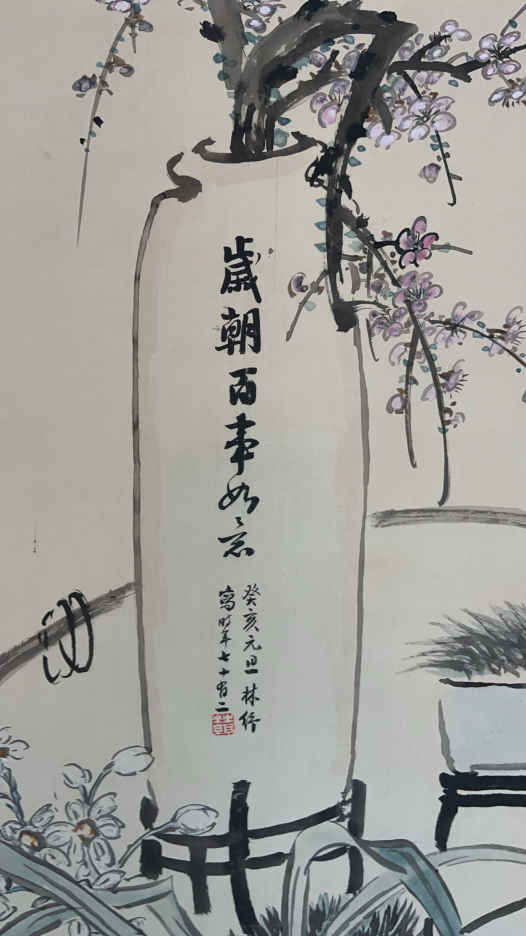 歲朝百事如意
癸亥元旦林
寫時年七十有二